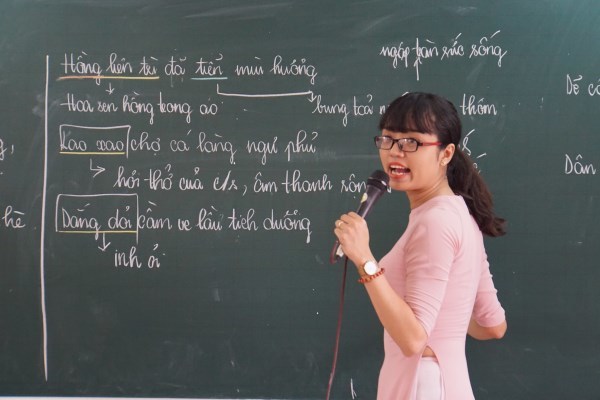 Hồng liên trì đã tiễn mùi hương
ngập tràn sức sống
Hoa sen hồng trong ao
bung toả
thơm
Lao xao chợ cá làng ngư phủ
hơi thở của c/s, âm thanh
Dắng dỏi cầm ve lầu tịch dương
inh ỏi
hè
Để
Dân